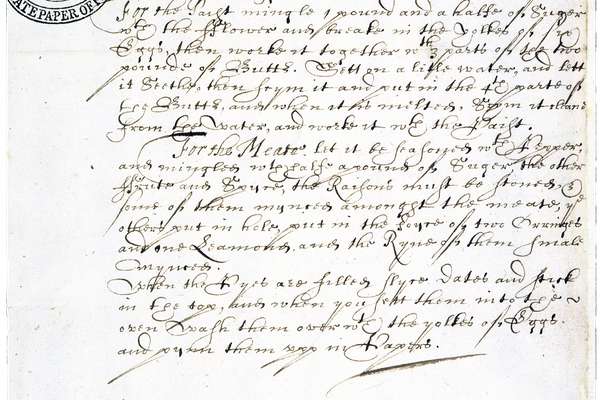 ATE PAPER OF
For the Paist mingle 1 pound and a halfe of Suger
wth the Flower and breake in the yolkes of
Eggs, then worke it together wth 3 parts of the two
pounds of Butter. Sett on a litle water, and lett
it Seethe, then scym it and put in the 4th parte of
the Butter, and when it is melted, Scym it cleane
from the water, and worke it wth the Paist.
For the Meate let it be seasoned wth Pepper,
and mingled wth halfe a pound of Suger the other
Frute and Spyce, the Raisons must be stoned, &
some of them mynced amongst the meate, ye
others put in hole, put in the Joyce of two Orringes
and one Leamond, and the Ryne of them smale
mynced.
When the Pyes are filled slyce dates and stick
in the top, and when you sett them into the
oven Wash them over wth the yolkes of Eggs.
and pynn them upp in Papers.